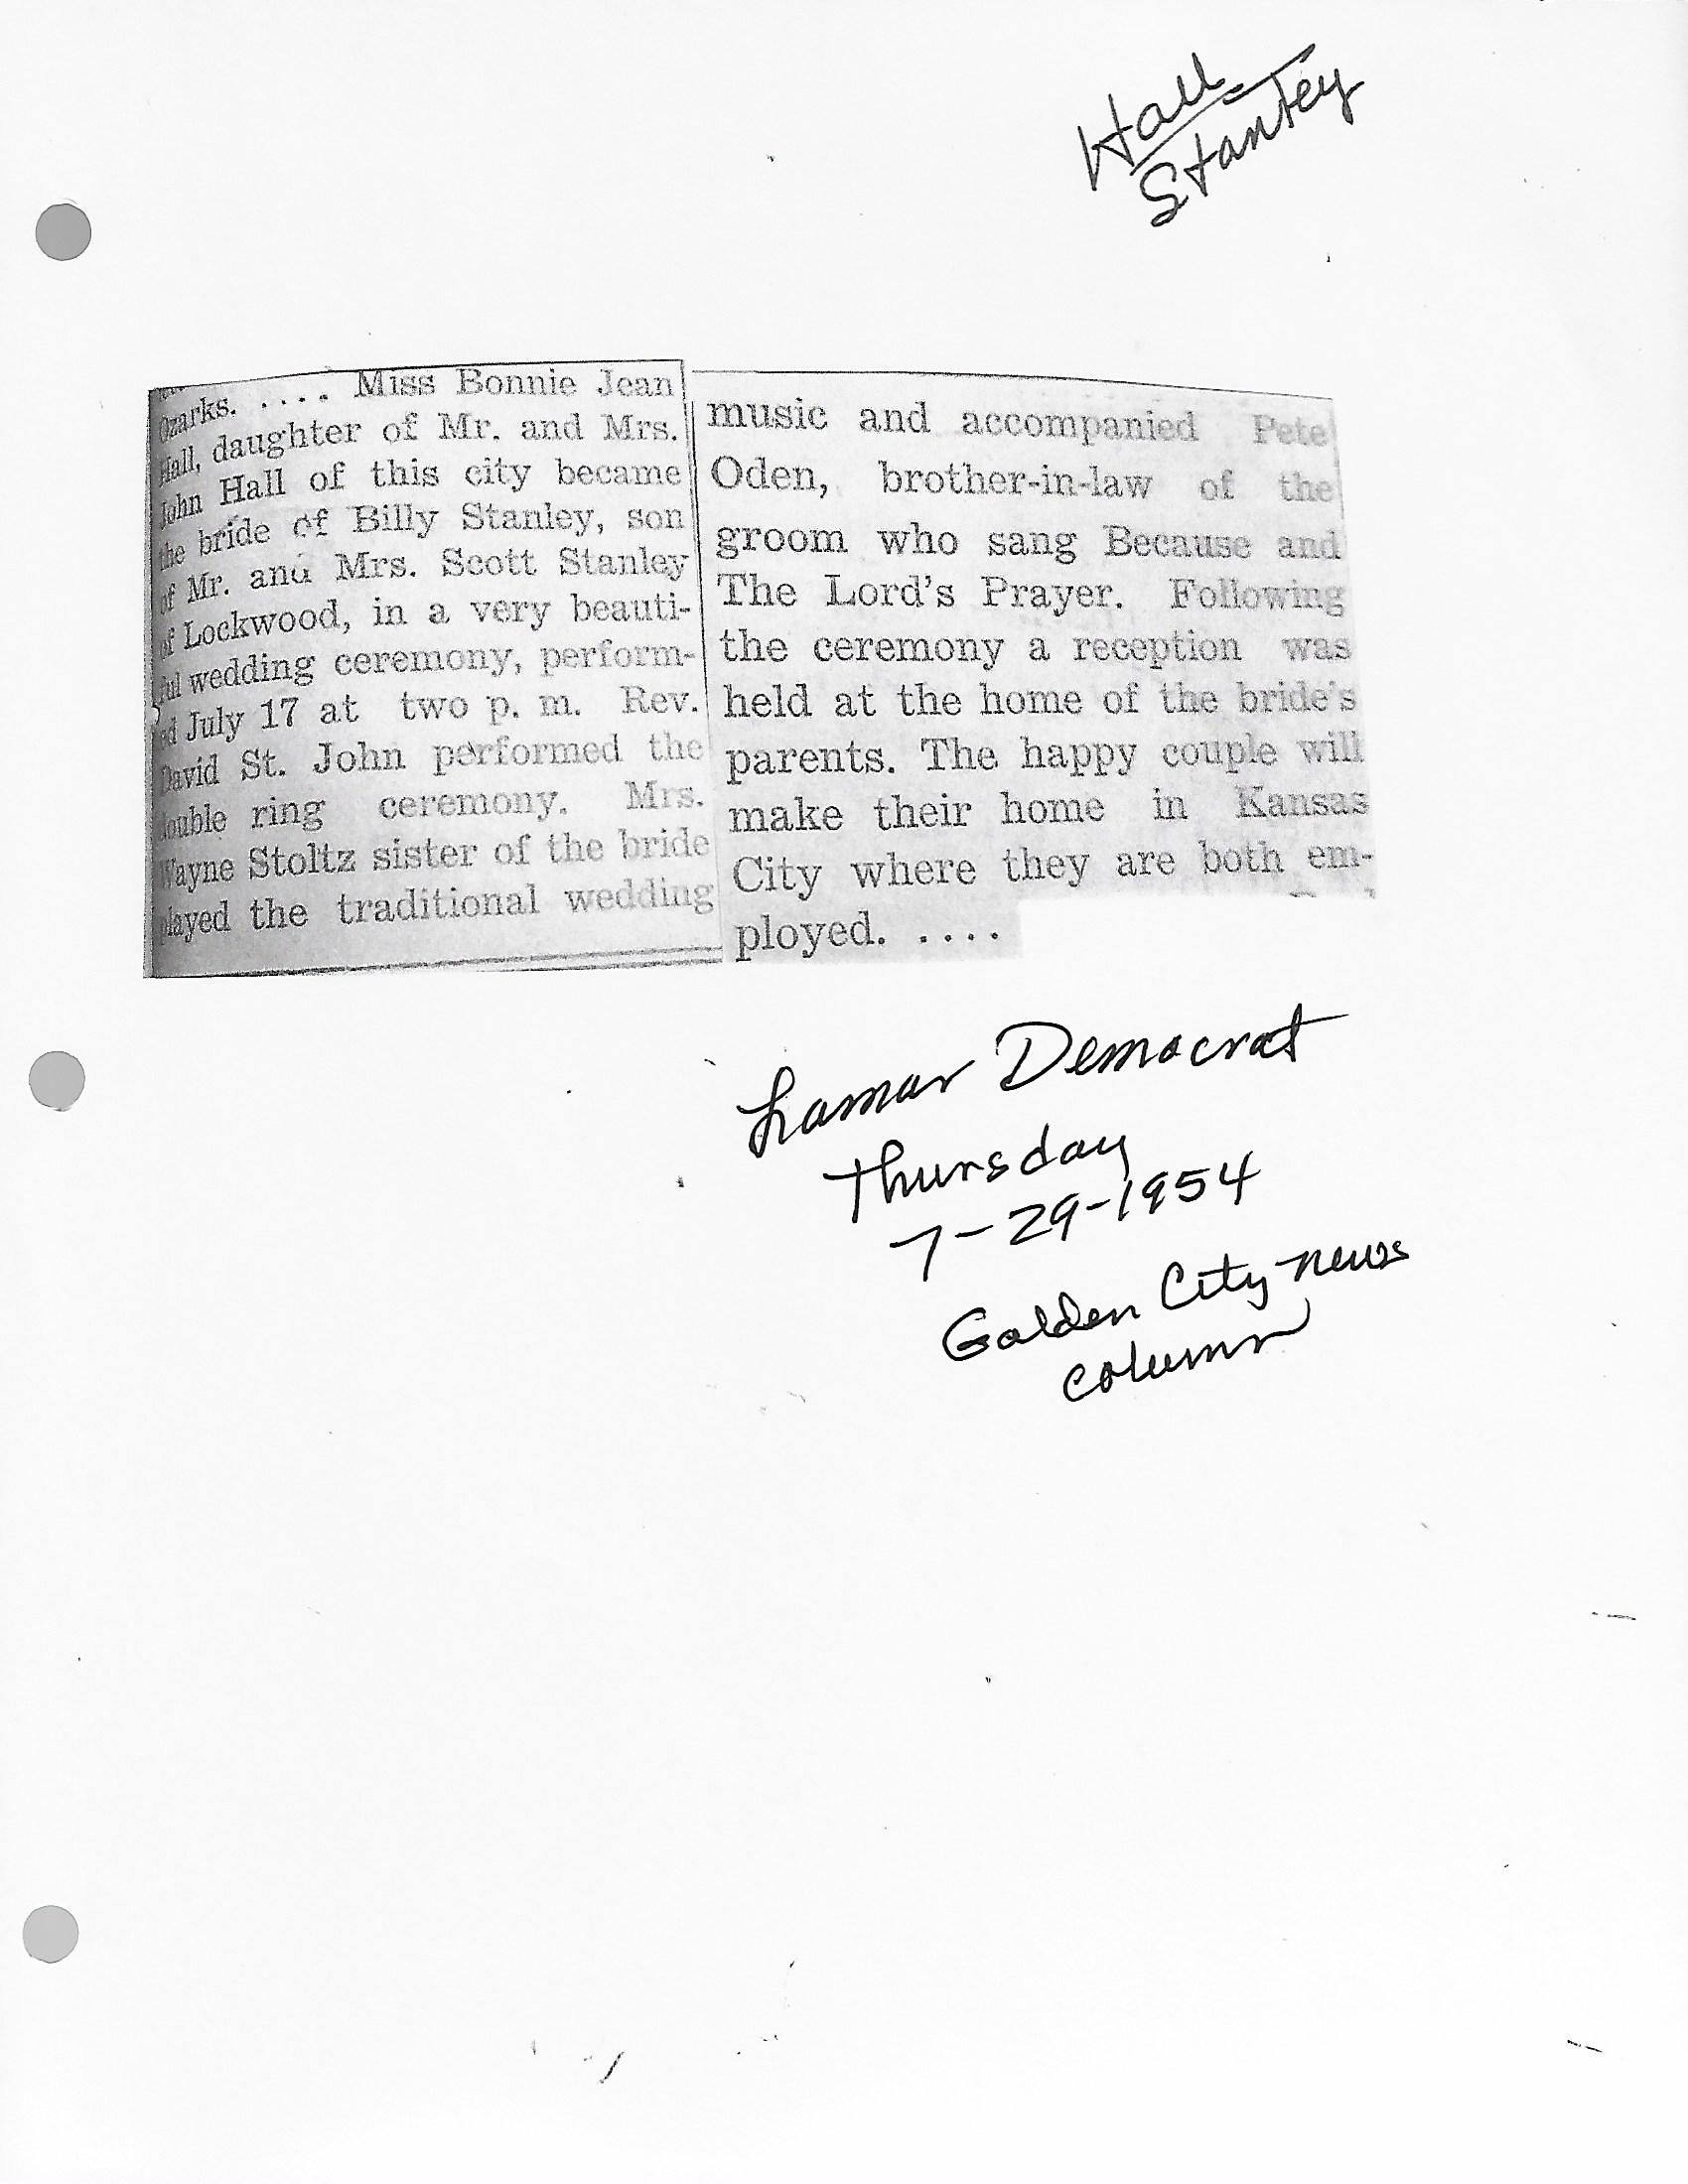 Hall
Stanley
Ozarks. .... Miss Bonnie Jean
Hall, daughter of Mr. and Mrs.
John Hall of this city became
the bride of Billy Stanley, son
of Mr. and Mrs. Scott Stanley
of Lockwood, in a very beauti-
ful wedding ceremony, perform-
ed July 17 at two p. m. Rev.
David St. John performed the
double ring ceremony. Mrs.
Wayne Stoltz sister of the bride
played the traditional wedding
music and accompanied Pete
Oden, brother-in-law of the
groom who sang Because and
The Lord's Prayer. Following
the ceremony a reception was
held at the home of the bride's
parents. The happy couple will
make their home in Kansas
City where they are both em-
ployed. ....
Lamar Democrat
Thursday
7-29-1954
Golden City news
column